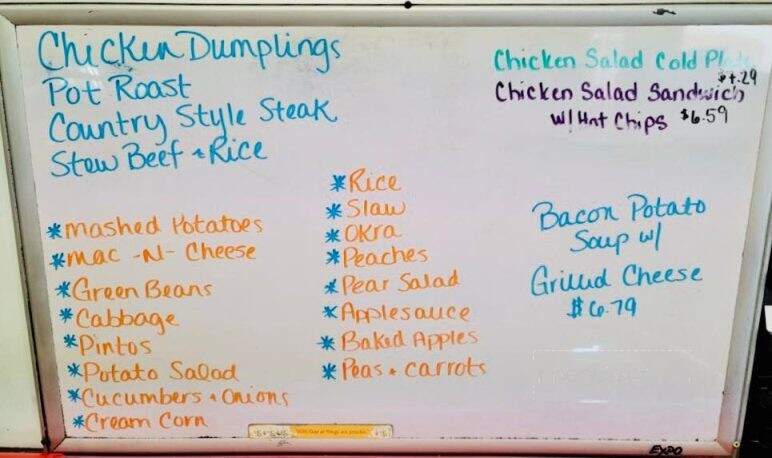 Chicken Dumplings
Pot Roast
Country Style Steak
Stew Beef + Rice
*mashed Potatoes
*mac -N- Cheese
*Green Beans
*Cabbage
*Pintos
*Potato Salad
*Cucumbers + Onions
*Cream Corn
*Rice
*Slaw
*Okra
*Peaches
*Pear Salad
*Applesauce
*Baked Apples
*Peas + Carrots
Chicken Salad Cold
Chicken Salad Sandwich
w/ Hot Chips $6.59
Bacon Potato
Soup w/
Grilled Cheese
$6.79
EXPO